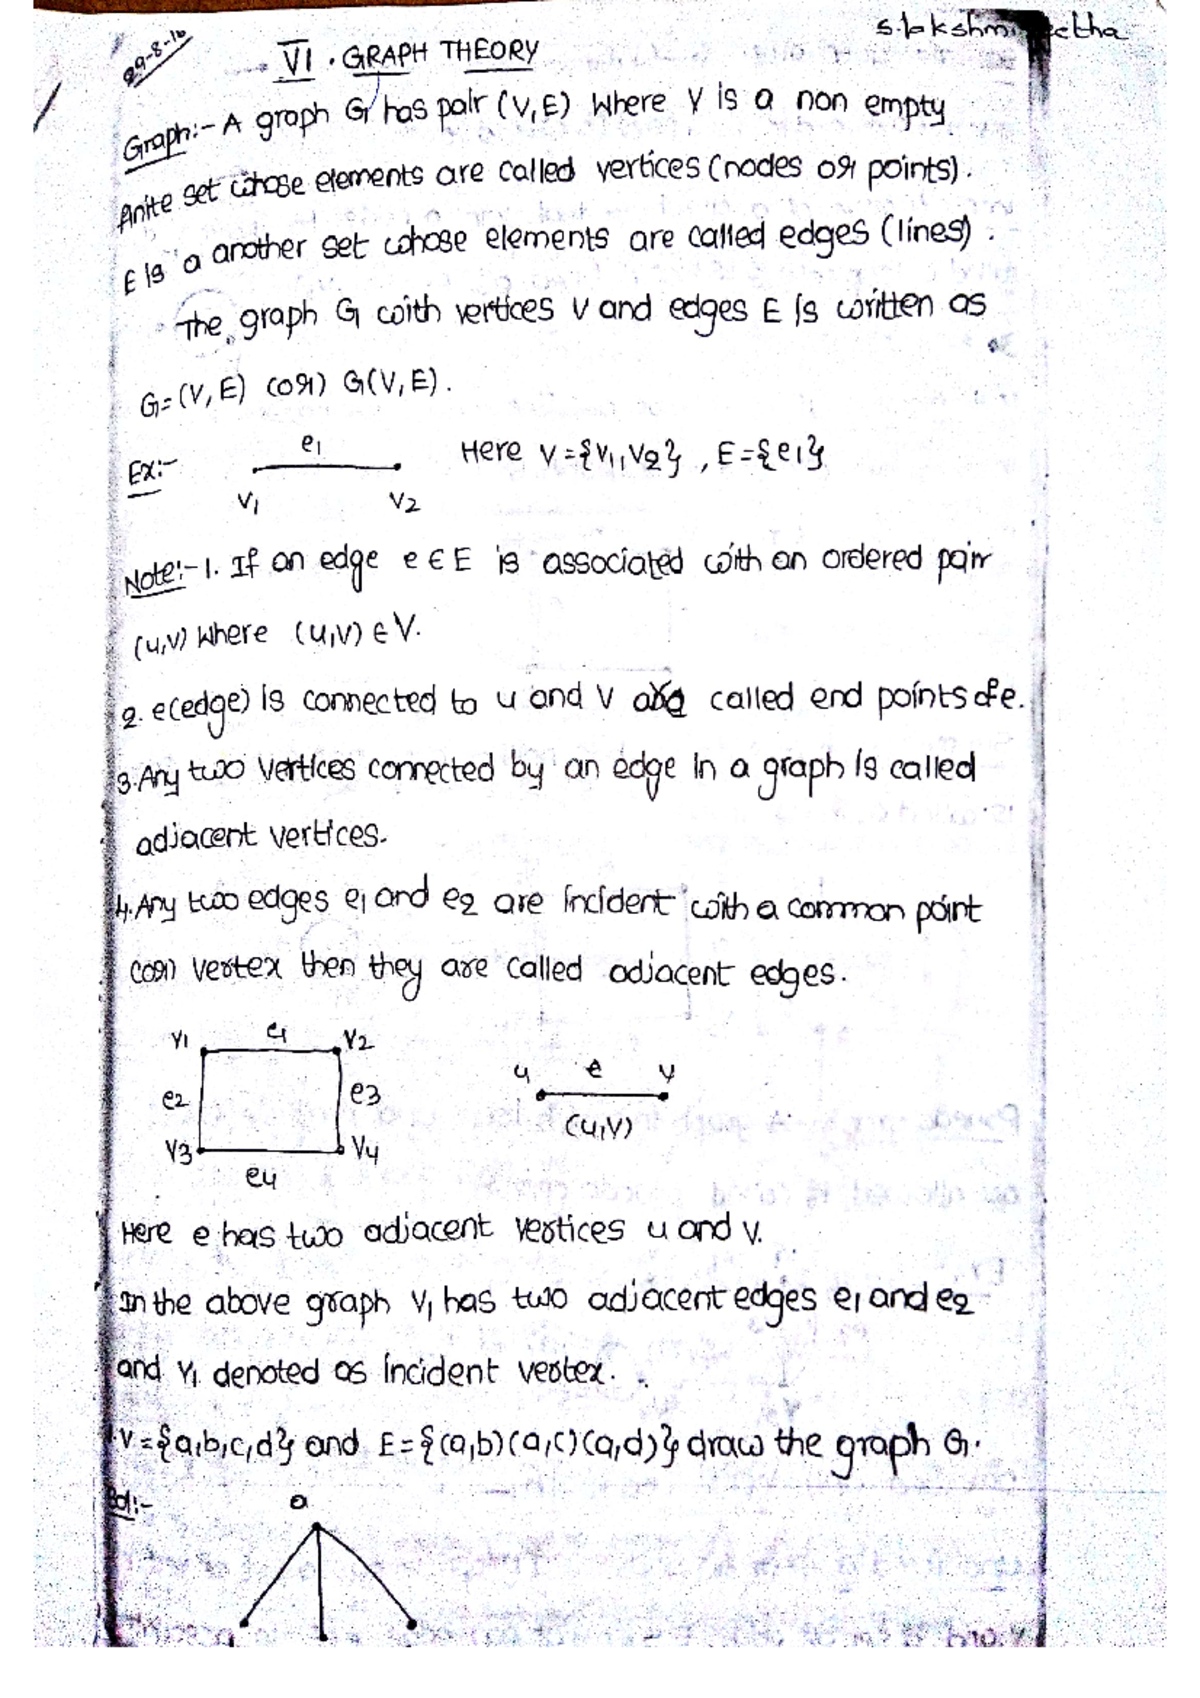 29-8-16
S. Lakshmi
VI . GRAPH THEORY
Graph:- A graph G has pair (V, E) Where V is a non empty
finite set whose elements are called vertices (nodes or points).
E is a another set whose elements are called edges (lines).
The graph G with vertices V and edges E is written as
G = (V, E) (or) G(V, E).
e1
Ex:- Here V = {V1, V2} , E = {e1}
V1 V2
Note:- 1. If an edge e ∈ E is associated with an ordered pair
(u,v) Where (u,v) ∈ V.
2. e(edge) is connected to u and v are called end points of e.
3. Any two vertices connected by an edge in a graph is called
adjacent vertices.
4. Any two edges e1 and e2 are incident with a common point
(or) vertex then they are called adjacent edges.
V1 e1 V2
e2 e3
V3 V4
e4
u e v
(u,v)
Here e has two adjacent vertices u and v.
In the above graph V1 has two adjacent edges e1 and e2
and V1 denoted as incident vertex.
1. V = {a,b,c,d} and E = {(a,b)(a,c)(a,d)} draw the graph G.
Sol:-
a